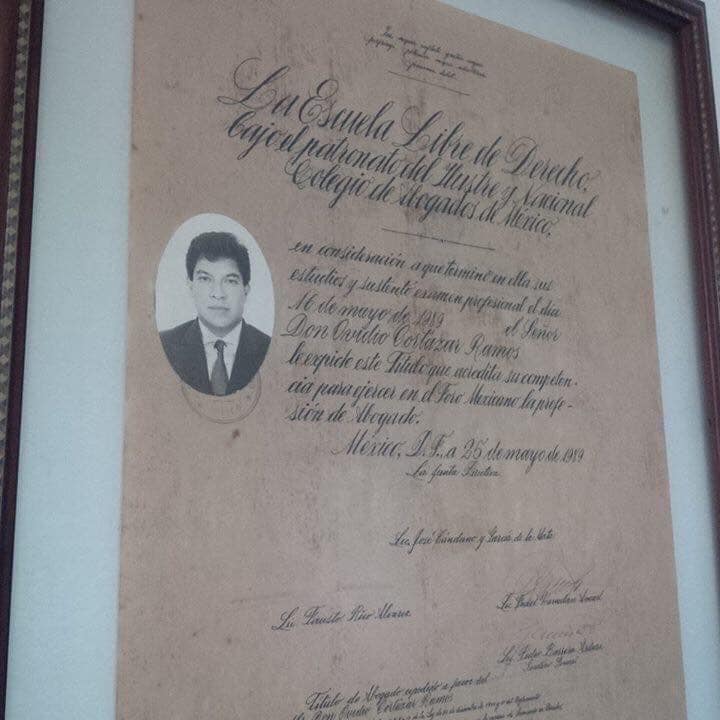 La Escuela Libre de Derecho,
bajo el patronato del Ilustre y Nacional
Colegio de Abogados de México,
en consideración a que terminó en ella sus
estudios y sustentó examen profesional el día
16 de mayo de 1989 el Señor
Don Ovidio Cortazar Ramos
le expide este Título que acredita su competen-
cia para ejercer en el Foro Mexicano la profe-
sión de Abogado.
México, D. F., a 25 de mayo de 1989
La Junta Directiva
Lic. José Cándano y García de la
Lic. Fausto Rico Alvarez
Lic.
Lic. Pedro Barrera
Título de Abogado expedido a favor del
Don Ovidio Cortazar Ramos